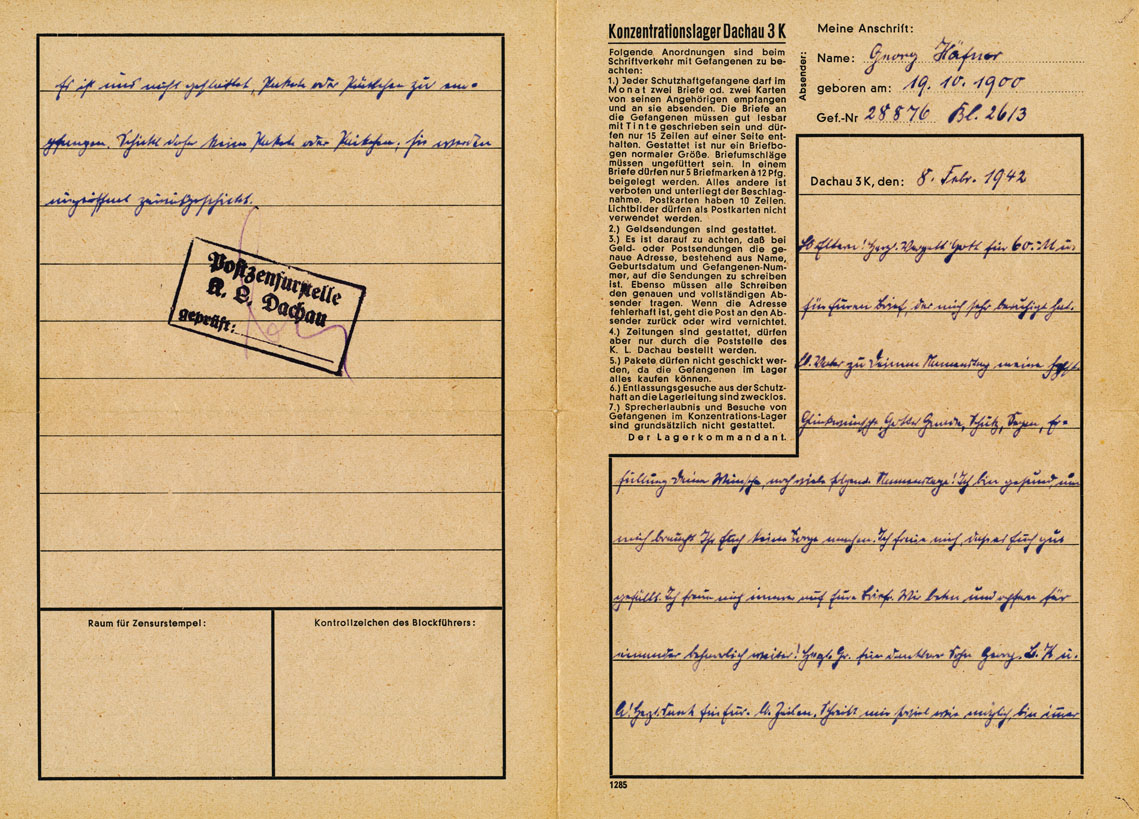 Es ist uns nicht gestattet, Pakete oder Päckchen zu em-
pfangen. Schickt daher keine Pakete oder Päckchen; sie werden
ungeöffnet zurückgeschickt.
Postzensurstelle
K. L. Dachau
geprüft:
Raum für Zensurstempel:
Kontrollzeichen des Blockführers:
Konzentrationslager Dachau 3 K
Folgende Anordnungen sind beim
Schriftverkehr mit Gefangenen zu be-
achten:
1.) Jeder Schutzhaftgefangene darf im
Monat zwei Briefe od. zwei Karten
von seinen Angehörigen empfangen
und an sie absenden. Die Briefe an
die Gefangenen müssen gut lesbar
mit Tinte geschrieben sein und dür-
fen nur 15 Zeilen auf einer Seite ent-
halten. Gestattet ist nur ein Briefbo-
gen normaler Größe. Briefumschläge
müssen ungefüttert sein. In einem
Briefe dürfen nur 5 Briefmarken à 12 Pfg.
beigelegt werden. Alles andere ist
verboten und unterliegt der Beschlag-
nahme. Postkarten haben 10 Zeilen.
Lichtbilder dürfen als Postkarten nicht
verwendet werden.
2.) Geldsendungen sind gestattet.
3.) Es ist darauf zu achten, daß bei
Geld- oder Postsendungen die ge-
naue Adresse, bestehend aus Name,
Geburtsdatum und Gefangenen-Num-
mer, auf die Sendungen zu schreiben
ist. Ebenso müssen alle Schreiben
den genauen und vollständigen Ab-
sender tragen. Wenn die Adresse
fehlerhaft ist, geht die Post an den Ab-
sender zurück oder wird vernichtet.
4.) Zeitungen sind gestattet, dürfen
aber nur durch die Poststelle des
K. L. Dachau bestellt werden.
5.) Pakete dürfen nicht geschickt wer-
den, da die Gefangenen im Lager
alles kaufen können.
6.) Entlassungsgesuche aus der Schutz-
haft an die Lagerleitung sind zwecklos.
7.) Sprecherlaubnis und Besuche von
Gefangenen im Konzentrations-Lager
sind grundsätzlich nicht gestattet.
Der Lagerkommandant.
Absender:
Meine Anschrift:
Name: Georg Häfner
geboren am: 19. 10. 1900
Gef.-Nr 28876 Bl. 26/3
Dachau 3 K, den: 8. Febr. 1942
Lb Eltern! Herzl. Vergelt Gott für 60.-M u.
für Euren Brief, der mich sehr beruhigt hat.
Lb. Vater zu Deinem Namenstag meine
Glückwünsche, Gottes Gnade, Schutz, Segen, Er-
füllung Deiner Wünsche, noch viele folgend. Namenstage! Ich bin gesund, um
mich braucht Ihr Euch keine Sorge machen. Ich freue mich, dass es Euch gut
gefällt. Ich freue mich immer auf Eure Briefe. Wir beten und opfern für
einander beharrlich weiter! Herzl. Gr. Euer dankbar Sohn Georg. L. K u.
A! Herzl. Dank für Eur. lb. Zeilen. Schreibt mir soviel wie möglich, bin immer
1285